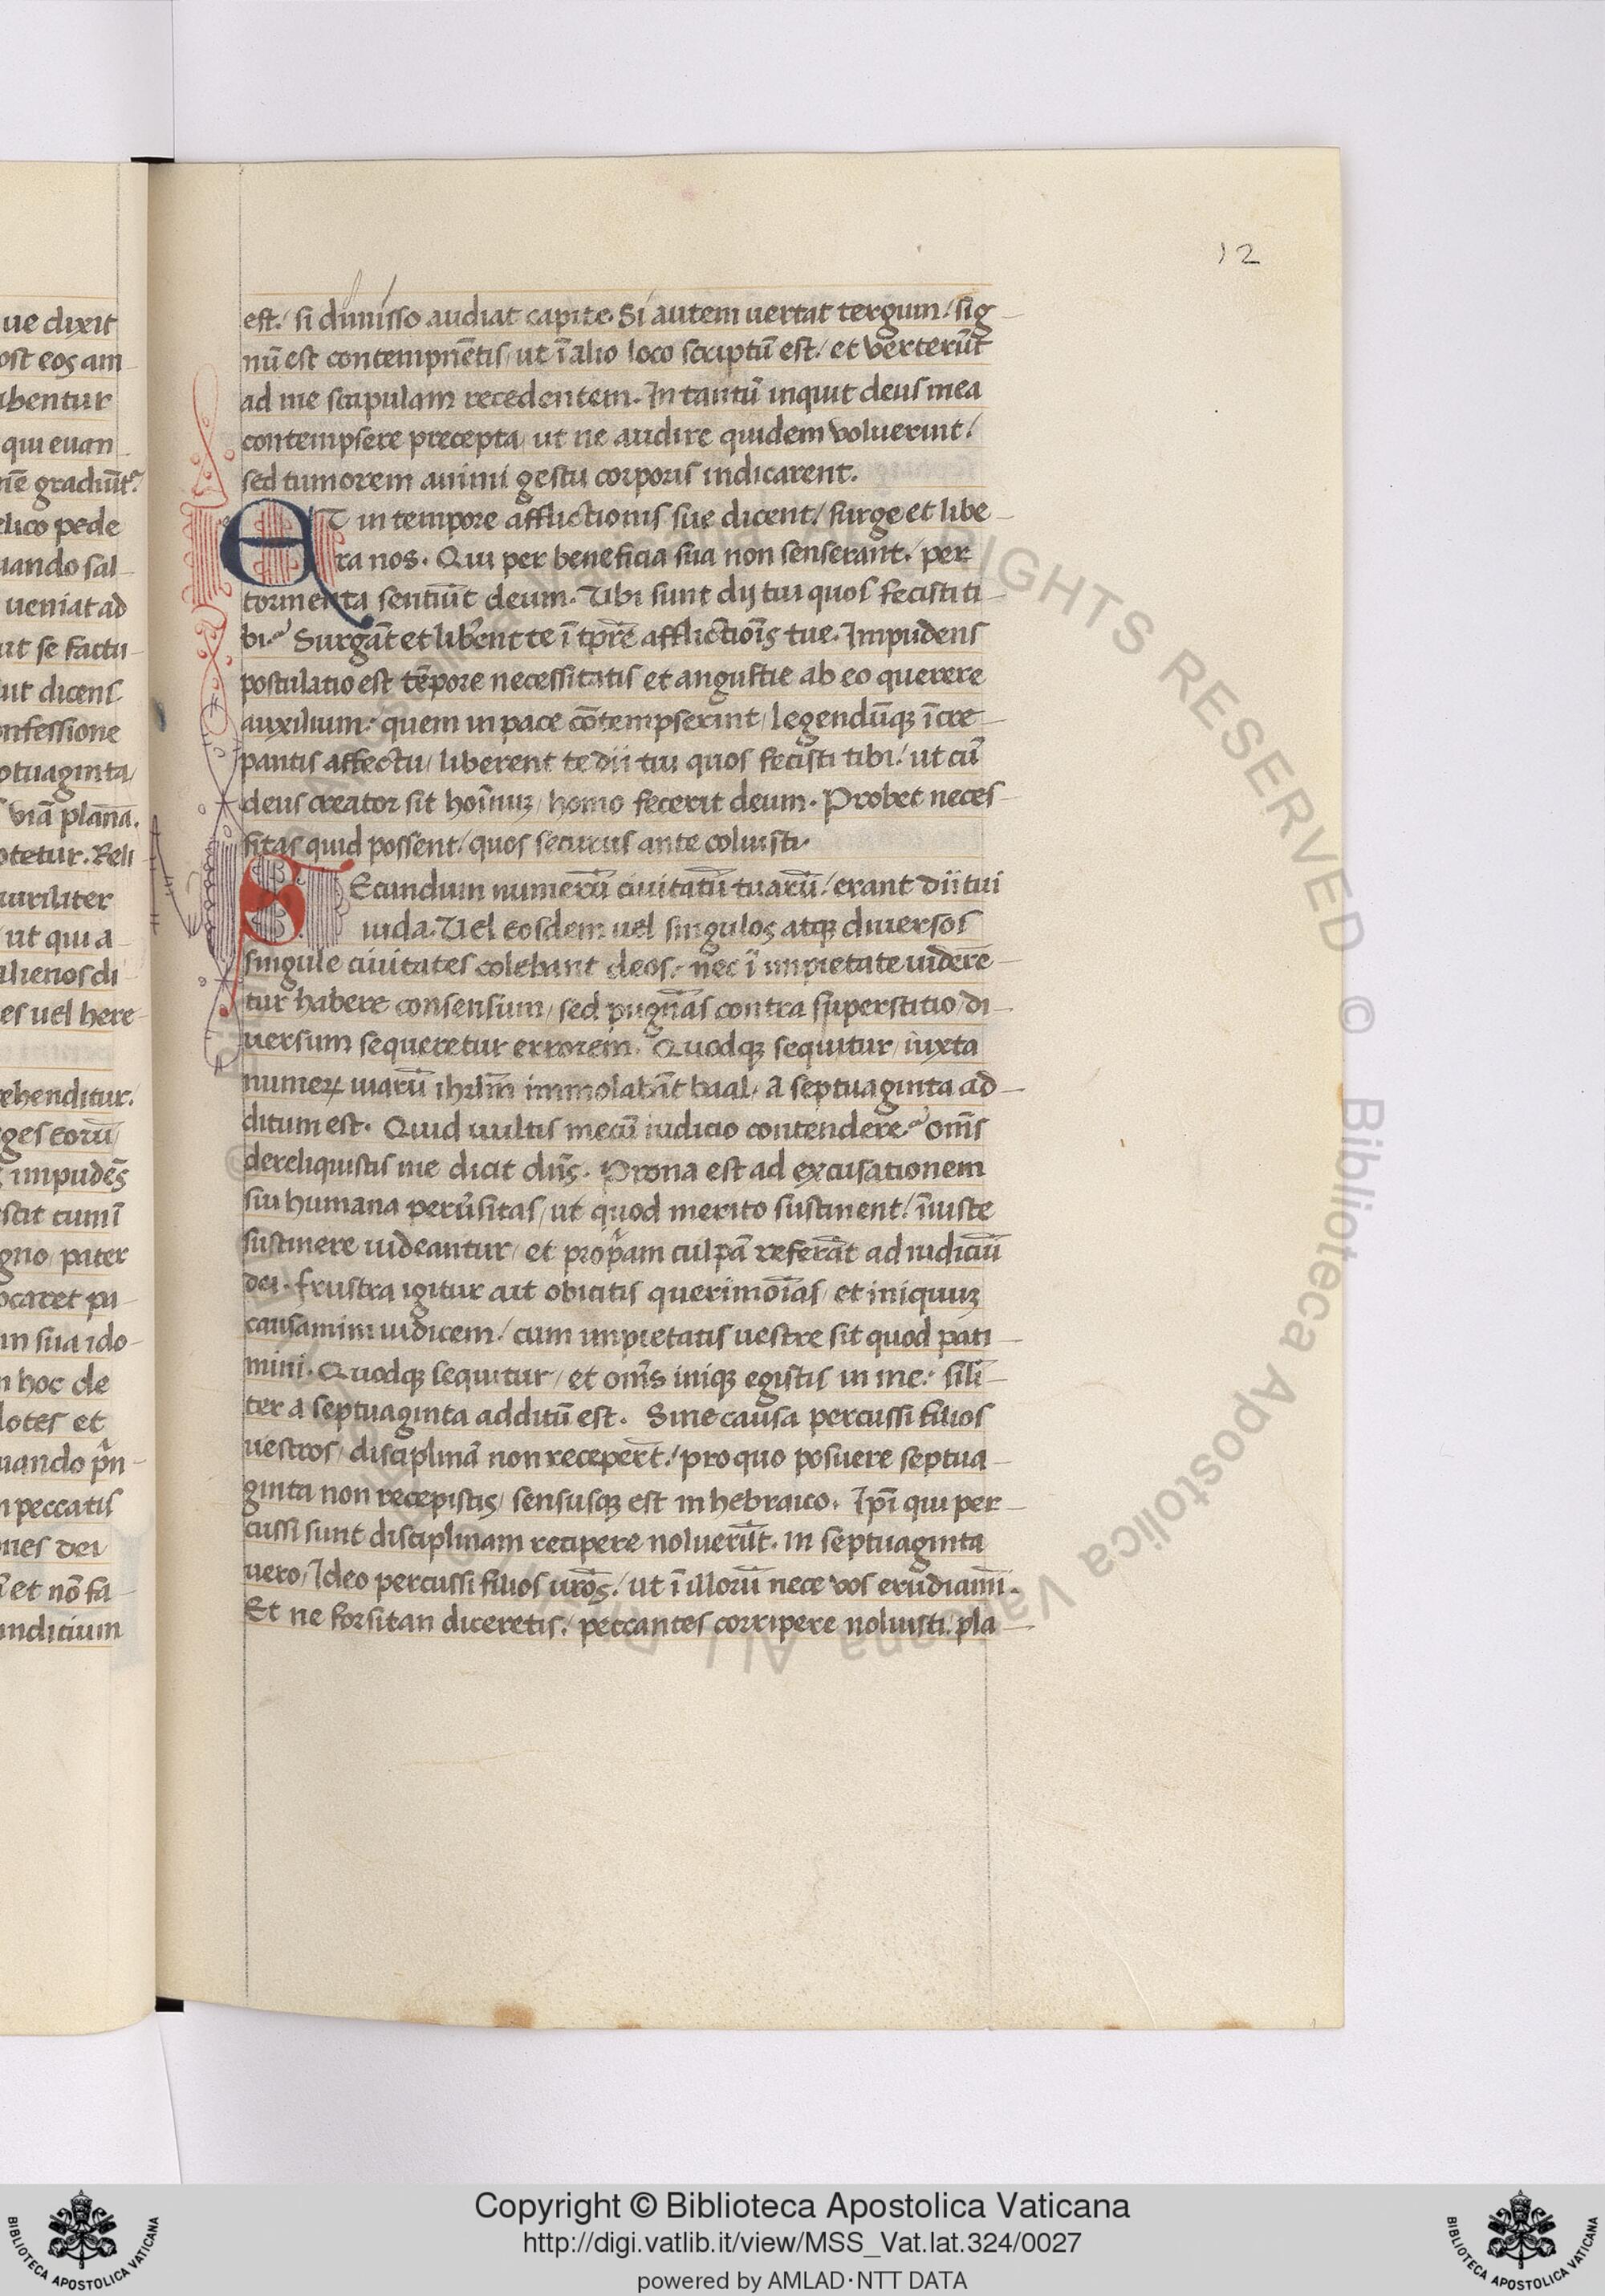 12
ue dixit
ost eos am
ibentur
qui euan
nē gradiūt͛
elico pede
uando sal
ueniat ad
ut se factu
ut dicens
onfessione
ptuaginta/
viā planā.
otetur. Reli
uiriliter
ut qui a
alienos di
es uel here
rehenditur.
ges eorū/
impudēs
scit cum ī
gno pater
ocaret pa
m sua ido
n hoc de
dotes et
uando p̄n
n peccatis
nes dei
et nō fa
inditium
est/ si dimisso audiat capite. Si autem uertat tergum/ sig
nū est contempnētis/ ut ī alio loco scriptū est/ et verterūt
ad me scapulam recedentem. In tantū inquit deus mea
contempsere precepta/ ut ne audire quidem voluerint/
sed tumorem animi gestu corporis indicarent.
ET in tempore afflictionis sue dicent/ surge et libe
ra nos. Qui per beneficia sua non senserant/ per
tormenta sentiūt deum. Ubi sunt dij tui quos fecisti ti
bi? Surgāt et lib̄ent te ī tp̄re afflictiōis tue. Impudens
postulatio est tēpore necessitatis et angustie ab eo querere
auxilium/ quem in pace cōtempserint/ legendūqȝ īcre
pantis affectu/ liberent te dii tui quos fecisti tibi/ ut cū
deus creator sit hoīnuȝ/ homo fecerit deum. Probet neces
sitas quid possent/ quos securus ante coluisti.
SEcundum numerū ciuitatū tuarū/ erant dii tui
iuda. Uel eosdem uel singulos atqȝ diuersos
singule ciuitates colebant deos/ nec ī impietate uidere
tur habere consensum/ sed pugnās contra superstitio/ di
uersum sequeretur errorem. Quodqȝ sequitur/ iuxta
numeꝝ uiarū ihrlm̄ immolabāt baal/ a septuaginta ad
ditum est. Quid uultis mecū iudicio contendere? om̄s
dereliquistis me dicit dn̄s. Prona est ad excusationem
sui humana peru̓sitas/ ut quod merito sustinent/ īiuste
sustinere uideantur/ et prop̓am culpā referāt ad iudiciū
dei. frustra igitur ait obicitis querimoīas/ et iniquuȝ
causamini iudicem/ cum impietatis uestre sit quod pati
mini. Quodqȝ sequitur/ et om̄s iniqȝ egistis in me/ sil̄i
ter a septuaginta additū est. Sine causa percussi filios
uestros/ disciplinā non recepert̄/ pro quo posuere septua
ginta non recepistis/ sensusqȝ est in hebraico. Ip̄i qui per
cussi sunt disciplinam recipere noluerūt. in septuaginta
uero/ Ideo percussi filios ur̄os/ ut ī illorū nece vos erudiam̄i.
Et ne forsitan diceretis/ peccantes corripere noluisti/ pla
© Biblioteca Apostolica Vaticana ALL RIGHTS RESERVED
Copyright © Biblioteca Apostolica Vaticana
http://digi.vatlib.it/view/MSS_Vat.lat.324/0027
powered by AMLAD·NTT DATA
BIBLIOTECA APOSTOLICA VATICANA
BIBLIOTECA APOSTOLICA VATICANA